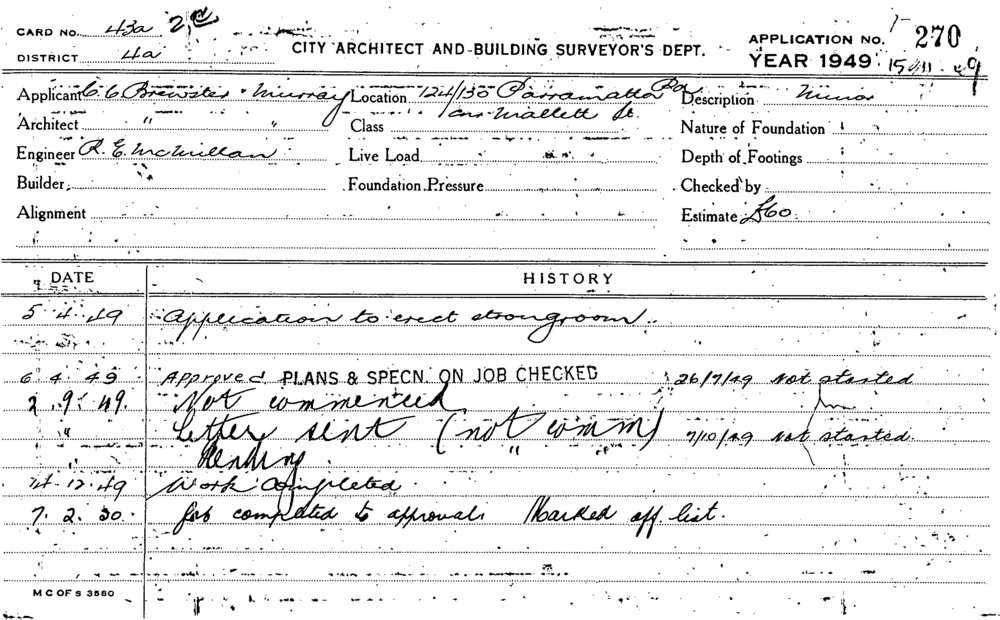 CARD NO. 43a 2c
DISTRICT 4a
CITY ARCHITECT AND BUILDING SURVEYOR'S DEPT.
APPLICATION NO. 270
YEAR 1949
Applicant C C Brewster Murray Location 124/130 Parramatta Rd Description Minor
cnr Mallett St.
Architect " " Class Nature of Foundation
Engineer R. E. McMillan Live Load Depth of Footings
Builder Foundation Pressure Checked by
Alignment Estimate £60
DATE HISTORY
5 4 49 Application to erect strongroom.
6 4 49 Approved PLANS & SPECN. ON JOB CHECKED 26/7/49 Not started
2 . 9 . 49. Not commenced
" Letter sent (not comm) 7/10/49 Not started.
" Pending "
14 12 49 Work Completed
7. 2. 50. Job completed to approval. Marked off list.
M C OF S 3580